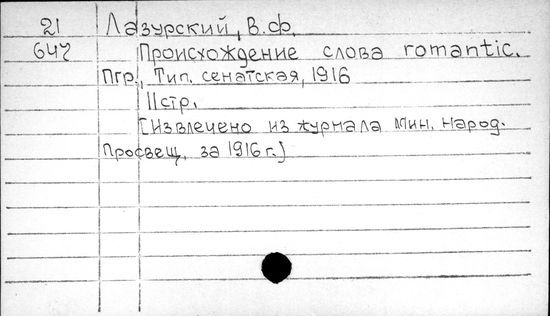 21 Лазурский, В.Ф.
647 Происхождение слова romantic.
Пгр., Тип. сенатская, 1916
11стр.
[Извлечено из журнала Мин. Народ.
Просвещ. за 1916 г.]